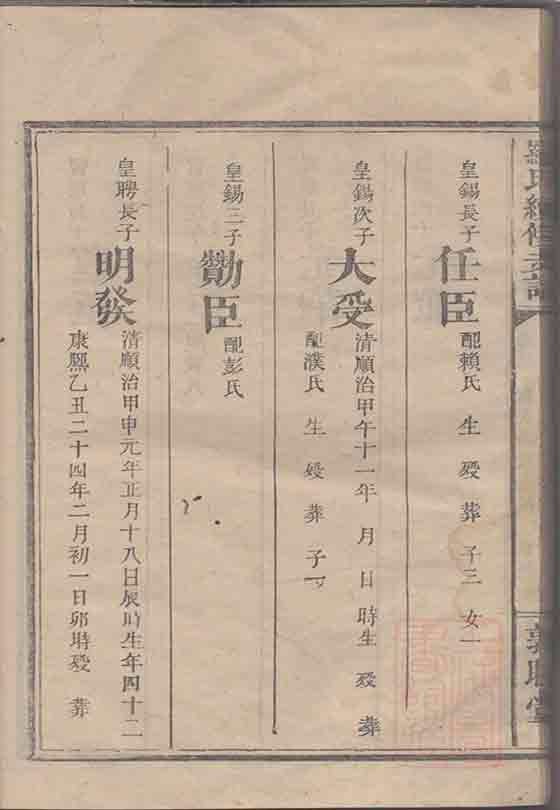 羅氏續修支譜
敦睦堂
皇錫長子
任臣
配賴氏 生 歿 葬 子三 女一
皇錫次子
大受
清順治甲午十一年 月 日 時生 歿 葬
配濮氏 生 歿 葬 子一
皇錫三子
勷臣
配彭氏
皇聘長子
明發
清順治甲申元年正月十八日辰時生年四十二
康熙乙丑二十四年二月初一日卯時歿 葬